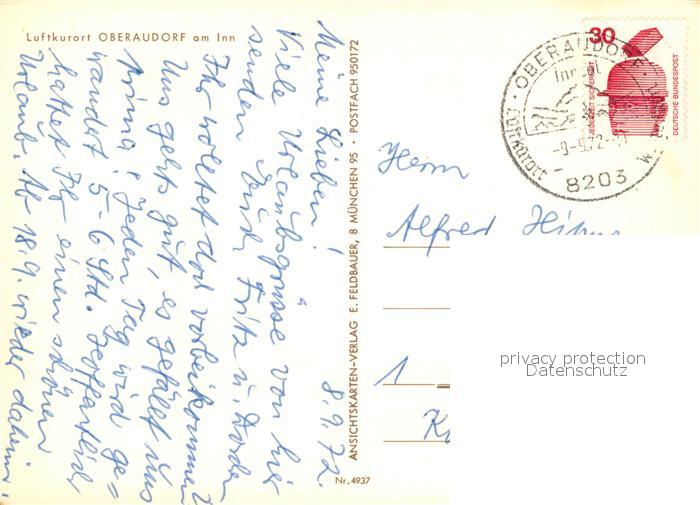 Luftkurort OBERAUDORF am Inn
Meine Lieben! 8.9.72.
Viele Urlaubsgrüsse von hier
senden Euch Fritz u.
Ihr wolltet doch vorbeikommen
Uns gehts gut, es gefällt uns
prima, jeden Tag wird ge=
wandert 5-6 Std. Hoffentlich
hattet Ihr einen schönen
Urlaub. Ab 18.9. wieder daheim.
ANSICHTSKARTEN-VERLAG E. FELDBAUER, 8 MÜNCHEN 95 · POSTFACH 950172
Nr. 4937
30
JEDERZEIT SICHERHEIT
DEUTSCHE BUNDESPOST
OBERAUDORF
Luftkurort
-9.9.72
8203
Herrn
Alfred
1
privacy protection
Datenschutz